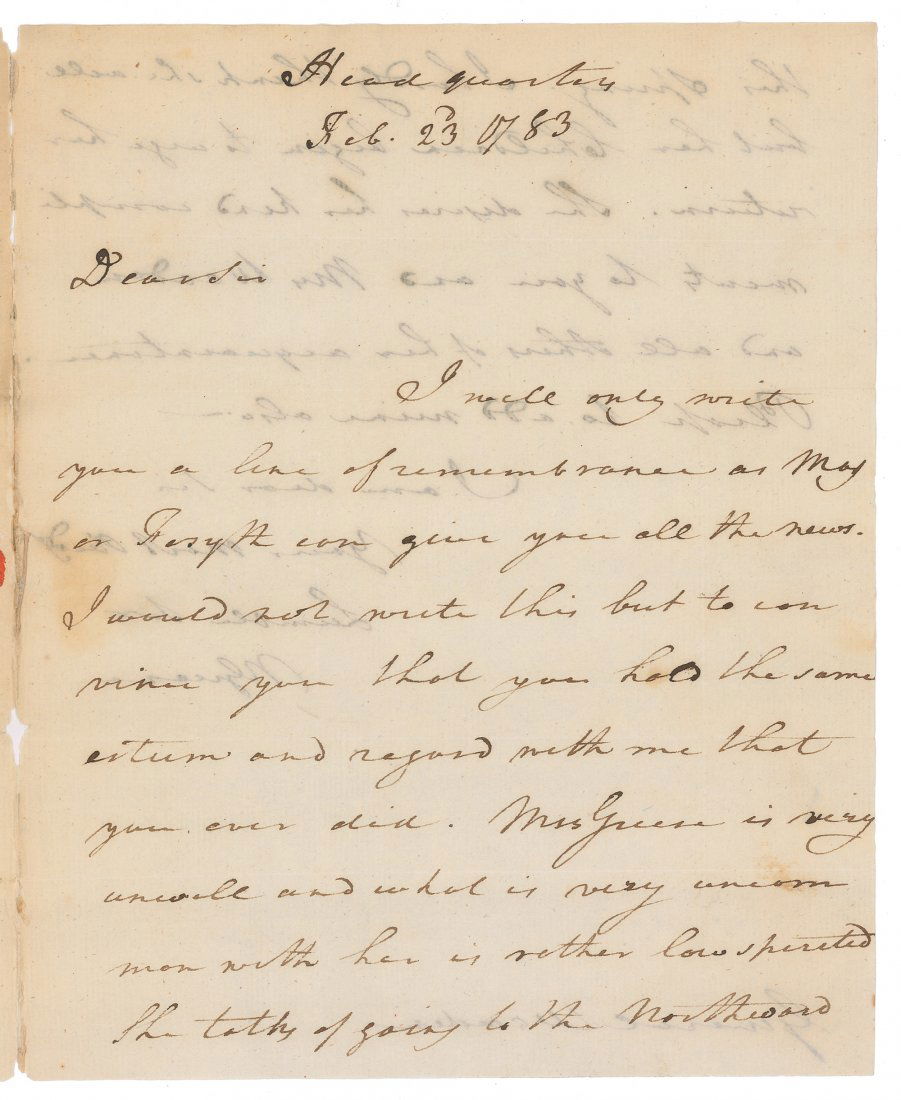 Head quarters
Feb. 23d 1783
Dear Sir
I will only write
you a line of remembrance as Maj
or Forsyth can give you all the news.
I would not write this but to con
vince you that you hold the same
esteem and regard with me that
you ever did. Mrs Greene is very
unwell and what is very uncom
mon with her is rather low spirited
She talks of going to the Northward